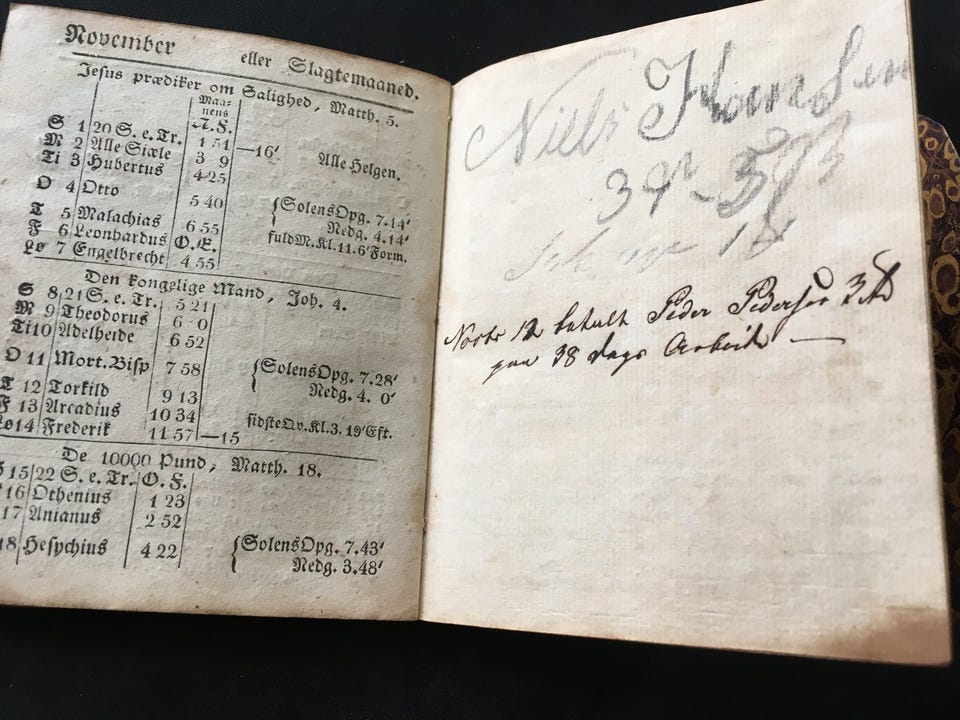 November eller Slagtemaaned.
Jesus prædiker om Salighed, Matth. 5.
Maa-
nens
N. F.
S 1 20 S. e. Tr. 1 51 —16' Alle Helgen.
M 2 Alle Siæle 3 9
Ti 3 Hubertus 4 25
O 4 Otto 5 40 {Solens Opg. 7.14'
Nedg. 4.14'
T 5 Malachias 6 55
F 6 Leonhardus O. E. fuld M. Kl. 11. 6' Form.
Lø 7 Engelbrecht 4 55
Den kongelige Mand, Joh. 4.
S 8 21 S. e. Tr. 5 21
M 9 Theodorus 6 0
Ti 10 Adelheide 6 52
O 11 Mort. Bisp 7 58 {Solens Opg. 7.28'
Nedg. 4. 0'
T 12 Torkild 9 13
F 13 Arcadius 10 34 sidste Qv. Kl. 3. 19' Eft.
Lø 14 Frederik 11 57 —15
De 10000 Pund, Matth. 18.
15 22 S. e. Tr. O. F.
16 Othenius 1 23
17 Anianus 2 52
18 Hesychius 4 22 {Solens Opg. 7.43'
Nedg. 3.48'
Niels Hansen
12 betalt Peder Pedersen 3
38 dags Arbeide —